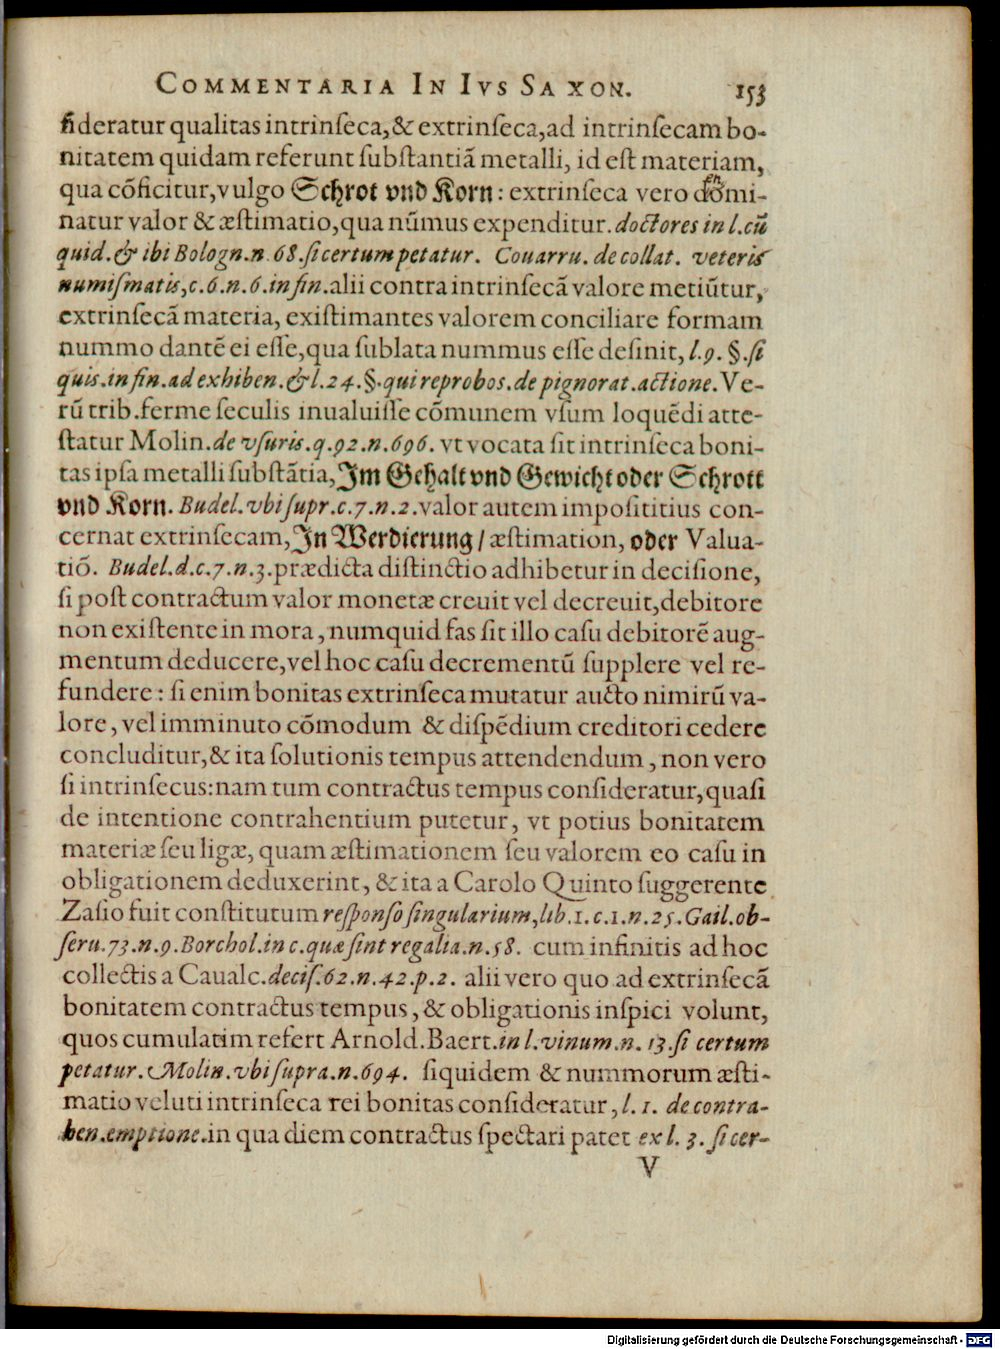 COMMENTARIA IN IVS SAXON. 153
ſideratur qualitas intrinſeca,& extrinſeca,ad intrinſecam bo-
nitatem quidam referunt ſubſtantiā metalli, id eſt materiam,
qua cōficitur,vulgo Schrot vnd Korn: extrinſeca vero domi-
natur valor & æſtimatio,qua nūmus expenditur. doctores in l.cū
quid.& ibi Bologn.n. 68. ſi certum petatur. Couarru. de collat. veteris
numiſmatis,c.6.n.6.in fin.alii contra intrinſecā valore metiūtur,
extrinſecā materia, exiſtimantes valorem conciliare formam
nummo dantē ei eſſe,qua ſublata nummus eſſe deſinit, l.9. §.ſi
quis.in fin.ad exhiben.& l.24.§.qui reprobos.de pignorat.actione.Ve-
rū trib.ferme ſeculis inualuiſſe cōmunem vſum loquēdi atte-
ſtatur Molin.de vſuris.q.92.n.696. vt vocata ſit intrinſeca boni-
tas ipſa metalli ſubſtātia,Im Gehalt vnd Gewicht oder Schrott
vnd Korn. Budel.vbi ſupr.c.7.n.2.valor autem impoſititius con-
cernat extrinſecam,In Werdierung/ æſtimation, oder Valua-
tiō. Budel.d.c.7.n.3.prædicta diſtinctio adhibetur in deciſione,
ſi poſt contractum valor monetæ creuit vel decreuit,debitore
non exiſtente in mora, numquid fas ſit illo caſu debitorē aug-
mentum deducere,vel hoc caſu decrementū ſupplere vel re-
fundere: ſi enim bonitas extrinſeca mutatur aucto nimirū va-
lore, vel imminuto cōmodum & diſpēdium creditori cedere
concluditur,& ita ſolutionis tempus attendendum, non vero
ſi intrinſecus:nam tum contractus tempus conſideratur,quaſi
de intentione contrahentium putetur, vt potius bonitatem
materiæ ſeu ligæ, quam æſtimationem ſeu valorem eo caſu in
obligationem deduxerint, & ita a Carolo Quinto ſuggerente
Zaſio fuit conſtitutum reſponſo ſingularium,lib.1.c.1.n.25.Gail.ob-
ſeru.73.n.9.Borchol.in c.quæ ſint regalia.n.58. cum infinitis ad hoc
collectis a Caualc.deciſ.62.n.42.p.2. alii vero quo ad extrinſecā
bonitatem contractus tempus, & obligationis inſpici volunt,
quos cumulatim refert Arnold.Baert.in l.vinum.n. 13.ſi certum
petatur. Molin.vbi ſupra.n.694. ſiquidem & nummorum æſti-
matio veluti intrinſeca rei bonitas conſideratur, l. 1. de contra-
hen.emptione.in qua diem contractus ſpectari patet ex l. 3. ſi cer-
V
Digitalisierung gefördert durch die Deutsche Forschungsgemeinschaft - DFG